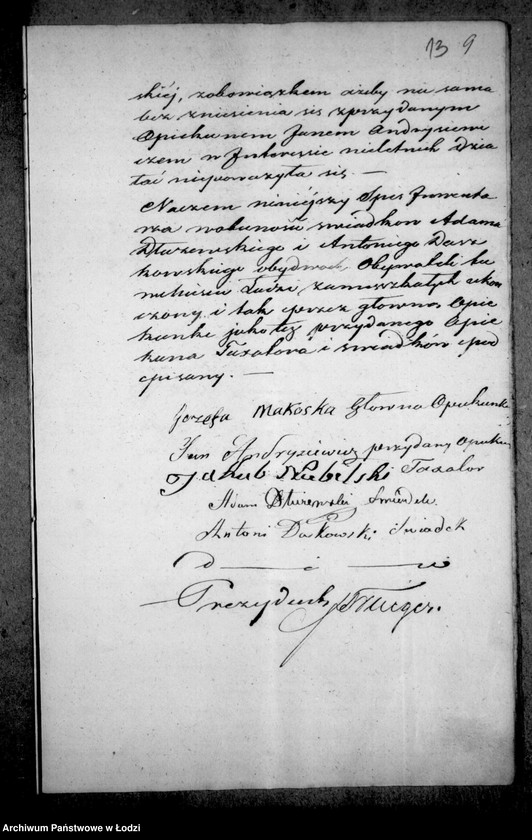 13 9
skiéj, zobowiązkem ażeby na sama
bez zniesienia się z przydanym
Opiekunem Janem Andrysiewi
czem w Interessie nieletnich dzia
łać niepoważyła się. —
Naczem niniejszy Spis Inwenta
rza w obecności świadków Adama
Dłużewskiego i Antoniego Dasz
kowskiego obydwóch Obywateli tu
w mieście Łodzi zamieszkałych ukoń
czony i tak przez główną Opie
kunkę jako też przydanego Opie
kuna Taxatora i świadków pod
pisany. —
Jozefa Makoska Głowna Opiekunka
Jan Andrysiewicz przydany opiekun
Jakub Taxator
Adam Świadek
Antoni Daskowski Swiadek
Prezydent
Archiwum Państwowe w Łodzi